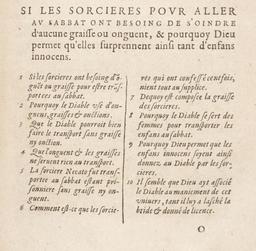 SI LES SORCIERES POVR ALLER
AV SABBAT ONT BESOING DE S'OINDRE
d'aucune graisse ou onguent, & pourquoy Dieu
permet qu'elles surprennent ainsi tant d'enfans
innocens.
1 Si les sorcieres ont besoing d'õ-
guẽt ou graisse pour estre trãs-
portees au sabbat.
2 Pourquoy le Diable vse d'on-
guens, graisses & onctions.
3 Que le Diable pourroit bien
faire le transport sans graisse
ny onction.
4 Que l'onguent & les graisses
ne seruent rien au transport.
5 La sorciere Necato fut trans-
portee au sabbat estant pri-
sonniere sans graisse ny on-
guent.
6 Comment est-ce que les sorcie-
res qui ont confessé ce
nient tout au supplice.
7 Dequoy est composee la graisse
des sorcieres.
8 Pourquoy le Diable se sert des
femmes pour transporter les
enfans au sabbat.
9 Pourquoy Dieu permet que les
enfans innocens soyent ainsi
donnez au Diable par les sor-
cieres.
10 Il semble que Dieu ayt associé
le Diable au maniment de cét
vniuers, tant il luy a lasché la
bride & donné de licence.
O